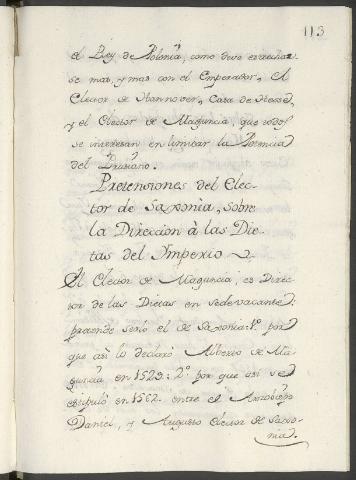 113
el Rey de Polonia, como deve estrechar-
se mas, y mas con el Emperador, el
Elector de Hannover, Casa de Hesse,
y el Elector de Maguncia, que todos
se interesan en limitar la Potencia
del Prusiano.
Pretensiones del Elec-
tor de Saxonia, sobre
la Direccion à las Die-
tas del Imperio
El Elector de Maguncia, es Direc-
tor de las Dietas en Sede vacante:
pretende serlo el de Saxonia: 1º. por
que asi lo declaró Alberto de Ma-
guncia en 1529: 2º. por que asi se
estipuló en 1562. entre el Arzobispo
Daniel, y Augusto Elector de Saxo-
nia.